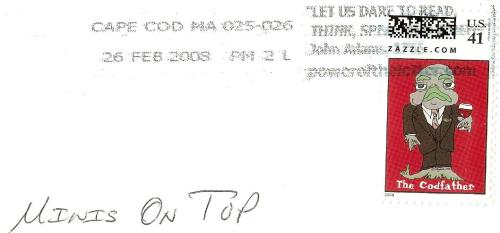 CAPE COD MA 025-026
26 FEB 2008 PM 2 L
"LET US DARE TO READ,
THINK,
John Adams
U.S.
41
ZAZZLE.COM
The Codfather
MINIS ON TOP